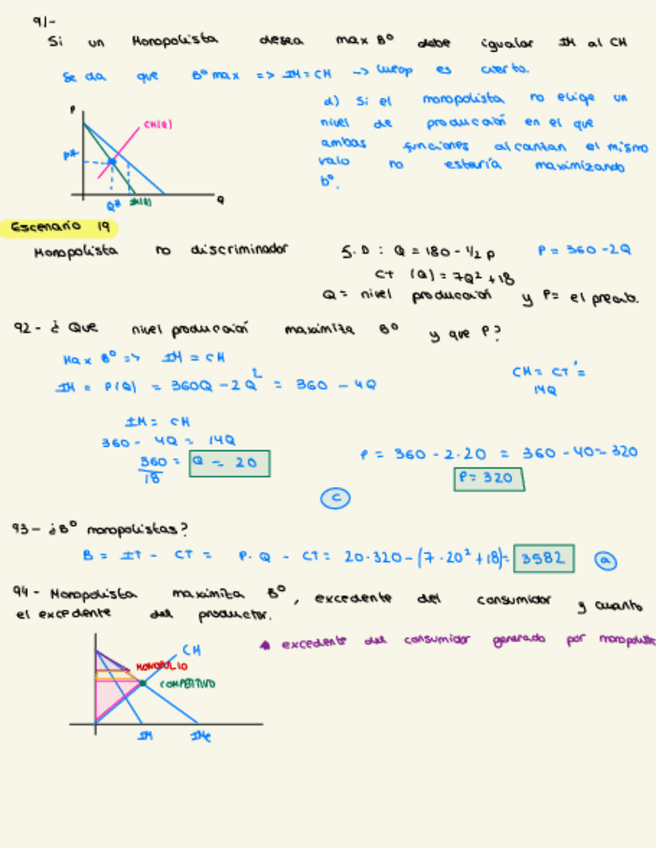 91-
Si un Monopolista desea max Bº debe igualar IM al CM
Se da que Bº max => IM = CM -> luego es cierto.
d) Si el monopolista no elige un
nivel de producción en el que
ambas funciones alcantan el mismo
valo no estaría maximizando
bº.
P
CM(Q)
P*
Q*
Q
Escenario 19
Monopolista no discriminador
S.D : Q = 180 - 1/2 p
P = 360 - 2Q
CT (Q) = 7Q² + 18
Q = nivel producción y P = el precio.
92- ¿ Que nivel producción maximita Bº y que P?
Max Bº => IM = CM
IM = P(Q) = 360Q - 2Q² = 360 - 4Q
CM = CT' =
14Q
IM = CM
360 - 4Q = 14Q
360/18 = Q = 20
P = 360 - 2·20 = 360 - 40 = 320
P = 320
c
93- ¿Bº monopolistas?
B = IT - CT = P·Q - CT = 20·320 - (7·20² + 18) = 3582 a
94- Monopolista maximita Bº, excedente del consumidor y cuanto
el excedente del productor.
excedente del consumidor generado por monopolist
CM
MONOPOLIO
COMPETITIVO
IM
IMe